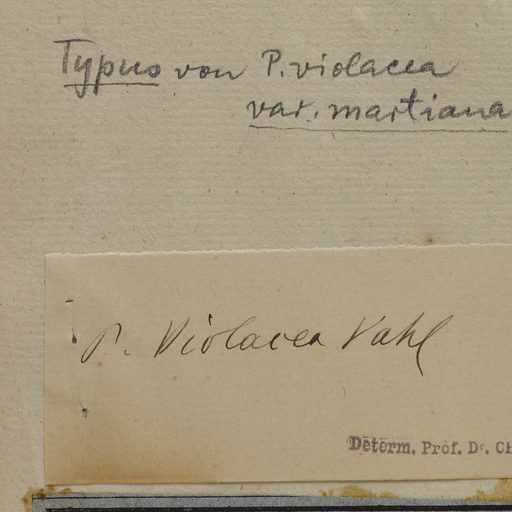 Typus von P. violacea
var. martiana
P. Violacea Vahl
Determ. Prof. Dr. CH